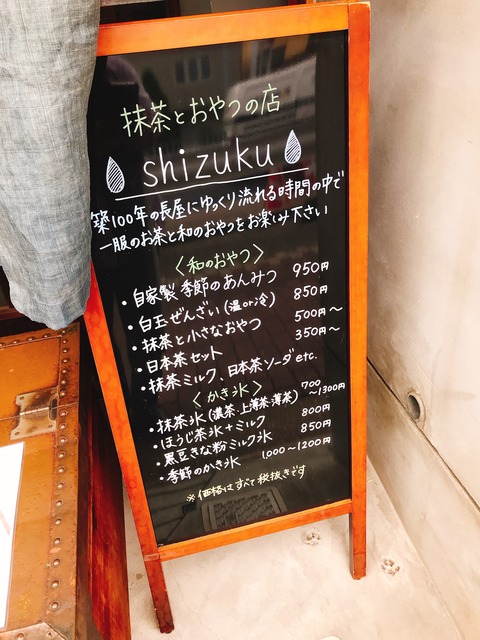 抹茶とおやつの店
shizuku
築100年の長屋にゆっくり流れる時間の中で
一服のお茶と和のおやつをお楽しみ下さい
〈和のおやつ〉
・自家製 季節のあんみつ 950円
・白玉ぜんざい(温or冷) 850円
・抹茶と小さなおやつ 500円〜
・日本茶セット 350円〜
・抹茶ミルク、日本茶ソーダetc.
〈かき氷〉
・抹茶氷(濃茶・上薄茶・薄茶) 700〜1300円
・ほうじ茶氷+ミルク 800円
・黒豆きな粉ミルク氷 850円
・季節のかき氷 1,000〜1200円
※価格はすべて税抜きです